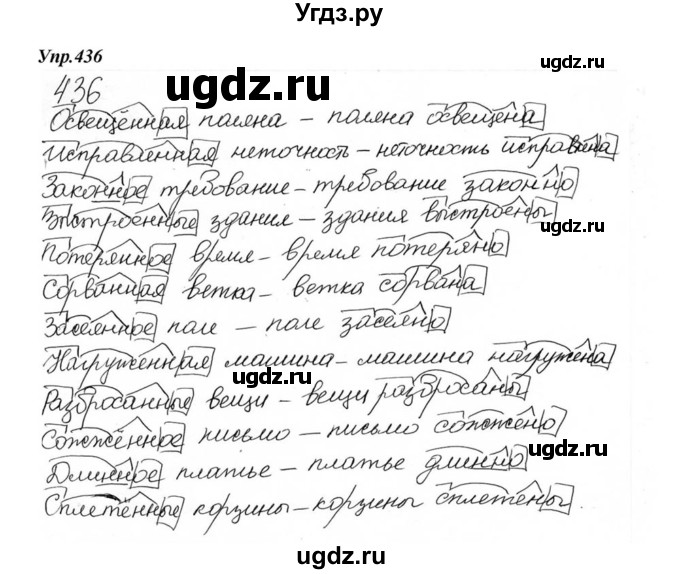 Угдз.ру
Упр.436
436
ugdz.ru ugdz.ru
Освещённая поляна – поляна освещена
Исправленная неточность – неточность исправлена
Законное требование – требование законно
ugdz.ru
Выстроенные здания – здания выстроены
Потерянное время – время потеряно
Сорванная ветка – ветка сорвана
Засеянное поле – поле засеяно
Нагруженная машина – машина нагружена
ugdz.ru
Разбросанные вещи – вещи разбросаны
Сожжённое письмо – письмо сожжено
Длинное платье – платье длинно
Сплетённые корзины – корзины сплетены
ugdz.ru
ugdz.ru